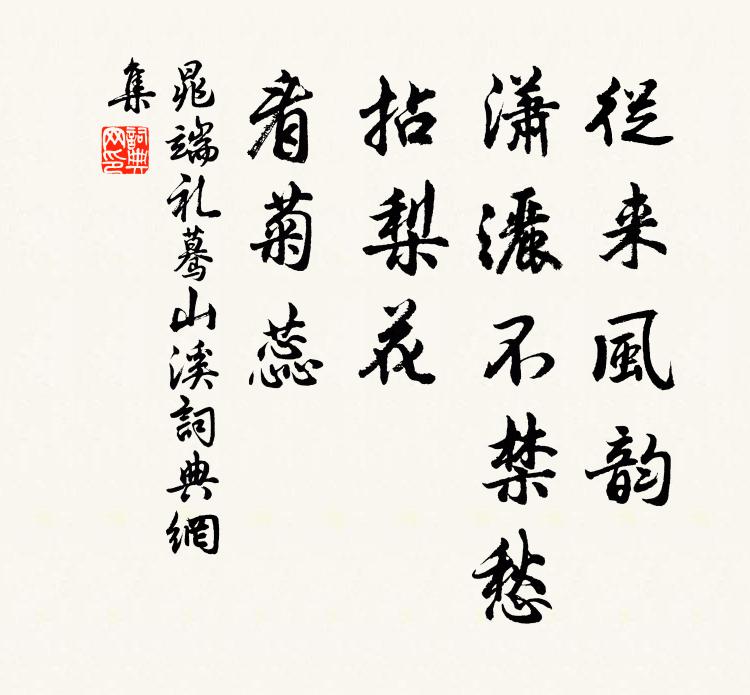 從来風韵
潇灑不禁愁
拈梨花
看菊蕊
晁端礼蓦山溪詞典網
集
詞典
网印